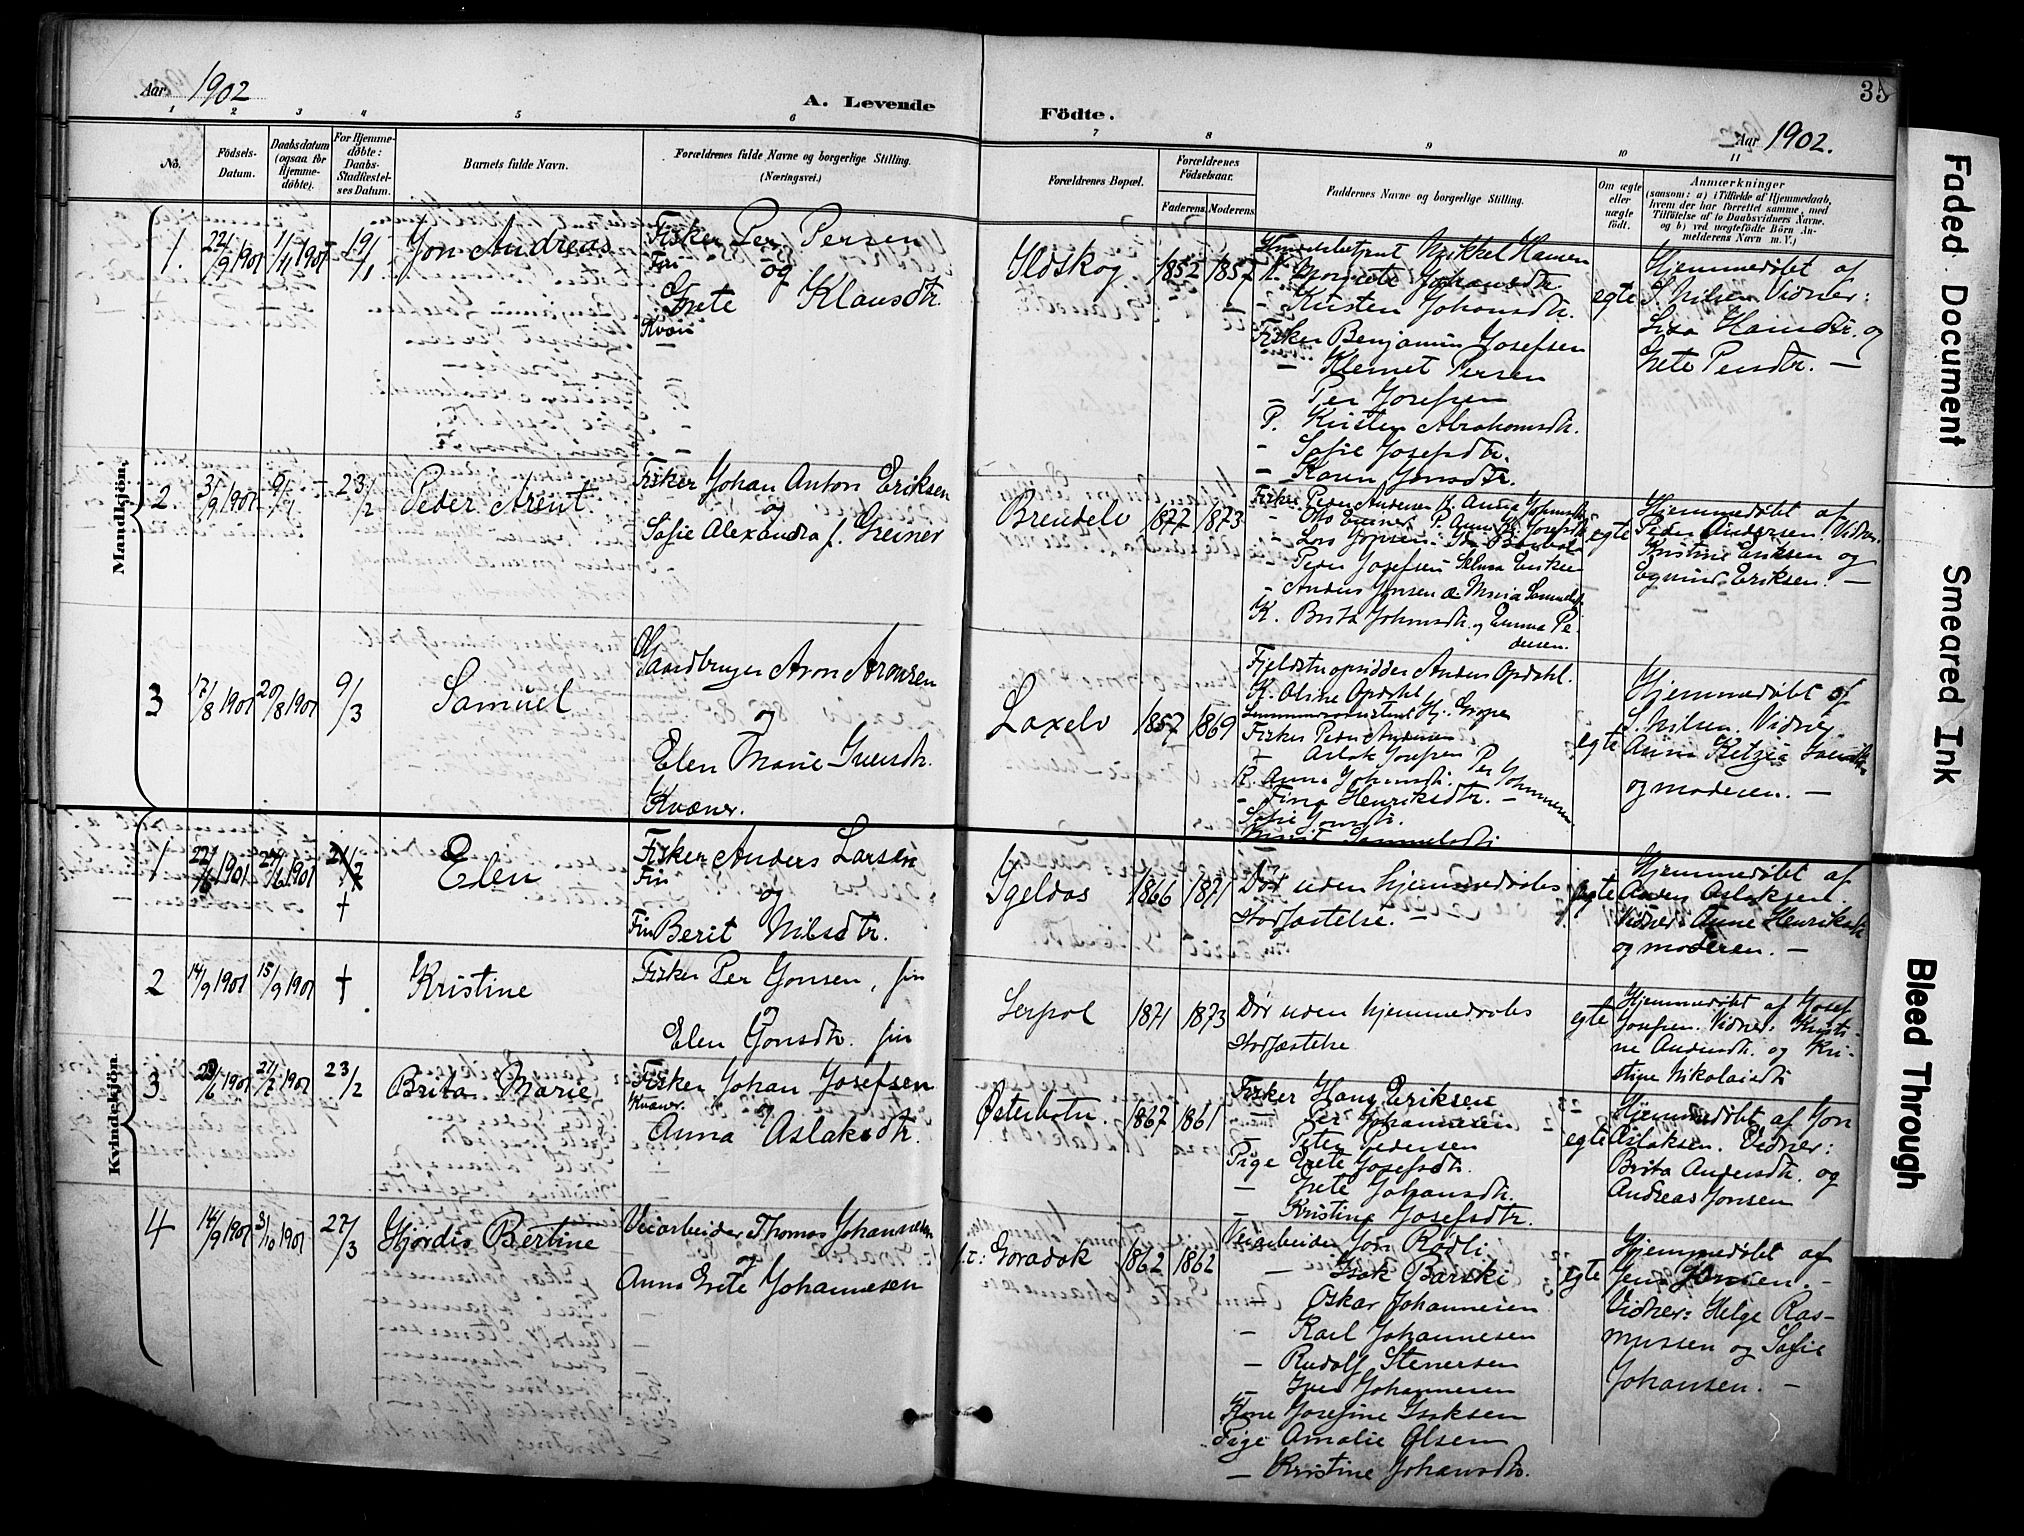 Aar 1902
A. Levende Födte.
Aar 1902.
35
1 2 3 4 5 6 7 8 9 10 11
No.
Födsels-Datum.
Daabsdatum (ogsaa for Hjemme-døbte).
For Hjemme-døbte: Daabs-Stadfæstel-ses Datum.
Barnets fulde Navn.
Forældrenes fulde Navne og borgerlige Stilling.
(Næringsvei.)
Forældrenes Bopæl.
Forældrenes Födselsaar.
Faderens. Moderens.
Faddernes Navne og borgerlige Stilling.
Om ægte eller uægte födt.
Anmærkninger
(saasom: a) i Tilfælde af Hjemmedaab,
hvem der har forrettet samme, med
Tilföielse af to Daabsvidners Navne.
og b) ved uægtefödte Börn An-
melderens Navn m. V.)
Mandkjön.
1. 22/9 1901 1/11 1901 19/1 Jon Andreas
Fisker Per Persen
Fin og
Grete Klausdtr.
Kvæn
Ildskog 1852 1857
Mikkel Hansen
K. Margrete Johansdtr
– Kirsten Johansdtr.
Fisker Benjamin Josefsen
– Klemet Persen
– Per Josefsen
P. Kirsten Abrahamsdtr.
– Sofie Josefsdtr.
– Karen Jonsdtr.
egte
Hjemmedøbt af
S. Nilsen. Vidner:
Lisa Hansdtr. og
Grete Persdtr. –
2. 3/9 1901 9/11 1901 23/2 Peder Arent
Fisker Johan Anton Eriksen
og
Sofie Alexandra f. Greiner
Brendelv 1877 1873
Fisker Peder Andersen K. Anna
– Otto Greiner P. Anna K. Josefsdtr
– Lars Jonsen
– Peder Josefsen Selma Eriksen
– Anders Jonsen & Maria
K. Brita Johansdtr. og Emma Pe-
dersen.
egte
Hjemmedøbt af
Peder Andersen. Vidner.
Kristine Eriksen og
Eriksen. –
3 17/8 1901 20/8 1901 9/3 Samuel
Gaardbruger Aron Aronsen
og
Elen Marie Iversdtr.
Kvæner.
Laxelv 1857 1869
Fjeldstuopsidder Anders Opdahl.
K. Oline Opdahl
Fisker Peder Andersen
– Aslak Josefsen Per Johannesen
K. Anna Johansdtr.
– Fina Henriksdtr. –
Sofie Jonsdtr.
Marit Samuelsdtr
egte
Hjemmedøbt af
S. Nilsen. Vidner
Anna Ketzia
og moderen. –
Kvindekjön.
1 22/6 1901 27/6 1901 21/2 † Elen
Fisker Anders Larsen
Fin
og
Fin Berit Nilsdtr.
Igeldas 1866 1871
Dør uden hjemmedøbes
stadfæstelse. –
egte
Hjemmedøbt af
Anders Aslaksen.
Vidner Anne Henriksdtr
og moderen. –
2 14/9 1901 15/9 1901 † Kristine
Fisker Per Jonsen, fin
og
Elen Jonsdtr. fin
Lerpol 1871 1873
Dør uden hjemmedøbes
stadfæstelse
egte
Hjemmedøbt af Josef
Josefsen. Vidner: Kristi-
ne Andersdtr. og Kri-
stine Nikolaisdtr
3 28/6 1901 21/7 1901 23/2 Brita Marie
Fisker Johan Josefsen
Kvæner. og
Anna Aslaksdtr.
Østerbotn 1867 1861
Fisker Hans Eriksen
– Per Johannesen
– Peter Pedersen
Pige Grete Josefsdtr.
– Grete Johansdtr.
– Kristine Josefsdtr.
egte
Hjemmedøbt af Jon
Aslaksen. Vidner:
Brita Andersdtr. og
Andreas Jonsen
4 14/9 1901 3/10 1901 27/3 Hjördis Bertine
Veiarbeider Thomas Johannesen
og
Anna Grete Johannesen
f.t: Goradok 1862 1862
Veiarbeider Jon Rødli
– Isak Barski
– Oskar Johannesen
– Karl Johannesen
– Rudolf Stenersen
– Iver Johannesen
Kone Josefine Isaksen
Pige Amalie Olsen
– Kristine Johansdtr.
egte
Hjemmedøbt af
Jens Jensen. –
Vidner: Helge Ras-
mussen og Sofie
Johansen. –
Faded Document
Smeared Ink
Bleed Through